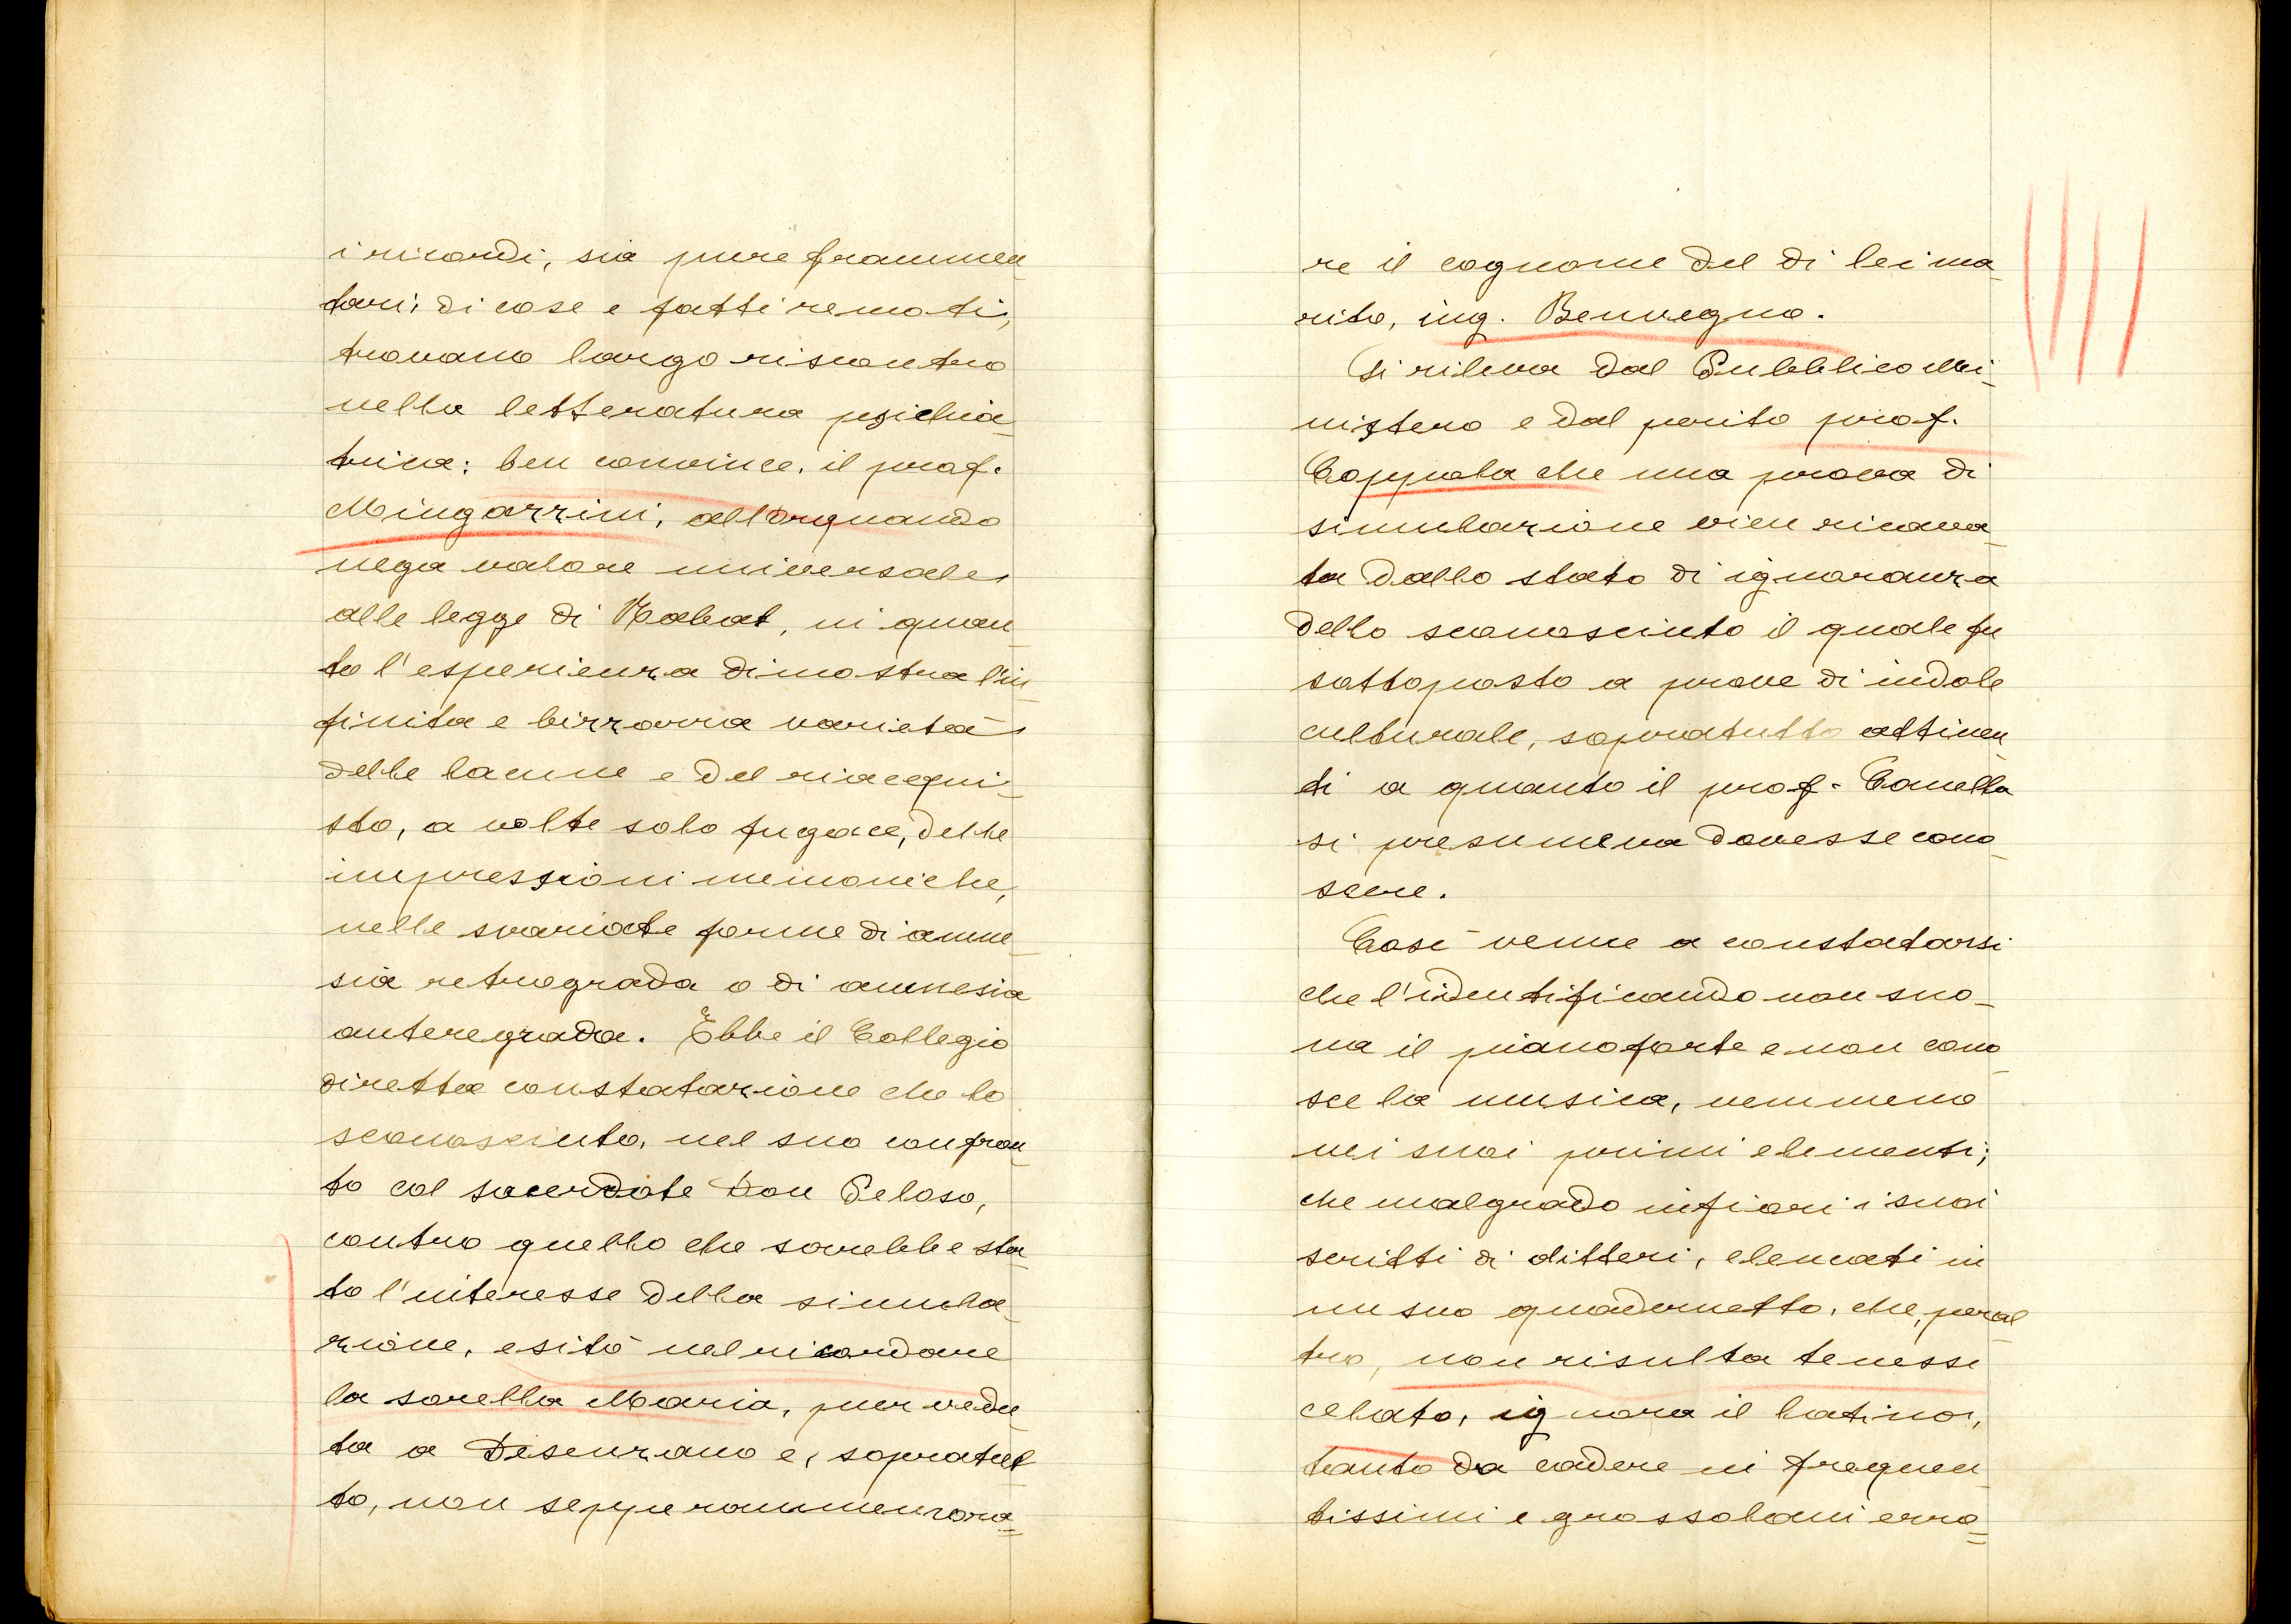 i ricordi, sia pure frammen
tari, di cose e fatti remoti,
trovano largo riscontro
nella letteratura psichia-
trica: ben convince, il prof.
Mingazzini, allorquando
nega valore universale,
alle legge di Rabat, in quan
to l'esperienza dimostra l'in
finita e bizzarra varietà,
delle lacune e del riacqui-
sto, a volte solo fugace, delle
impressioni mnemoniche,
nelle svariate forme di amne-
sia retrograda o di amnesia
anteregrada. Ebbe il Collegio
diretta constatazione che lo
sconosciuto, nel suo confron
to col sacerdote Don Peloso,
contro quello che sarebbe sta
to l'interesse della simula-
zione, esitò nel ricordare
la sorella Maria, pur vedu
ta a Desenzano e, sopratut
to, non seppe rammemora=
re il cognome del di lei ma
rito, ing. Benvegno.
Si rileva dal Pubblico Mi-
nistero e dal perito prof.
Coppola che una prova di
simulazione vien ricava-
ta dallo stato di ignoranza
dello sconosciuto il quale fu
sottoposto a prove di indole
culturale, sopratutto attinen
ti a quanto il prof. Canella
si presumeva dovesse cono-
scere.
Così venne a constatarsi
che l'identificando non suo-
na il pianoforte e non cono-
sce la musica, nemmeno
nei suoi primi elementi;
che malgrado infiori i suoi
scritti di ditteri, elencati in
un suo quadernetto, che, peral
tro, non risulta tenesse
celato, ignora il latino,
tanto da cadere in frequen
tissimi e grossolani erro=